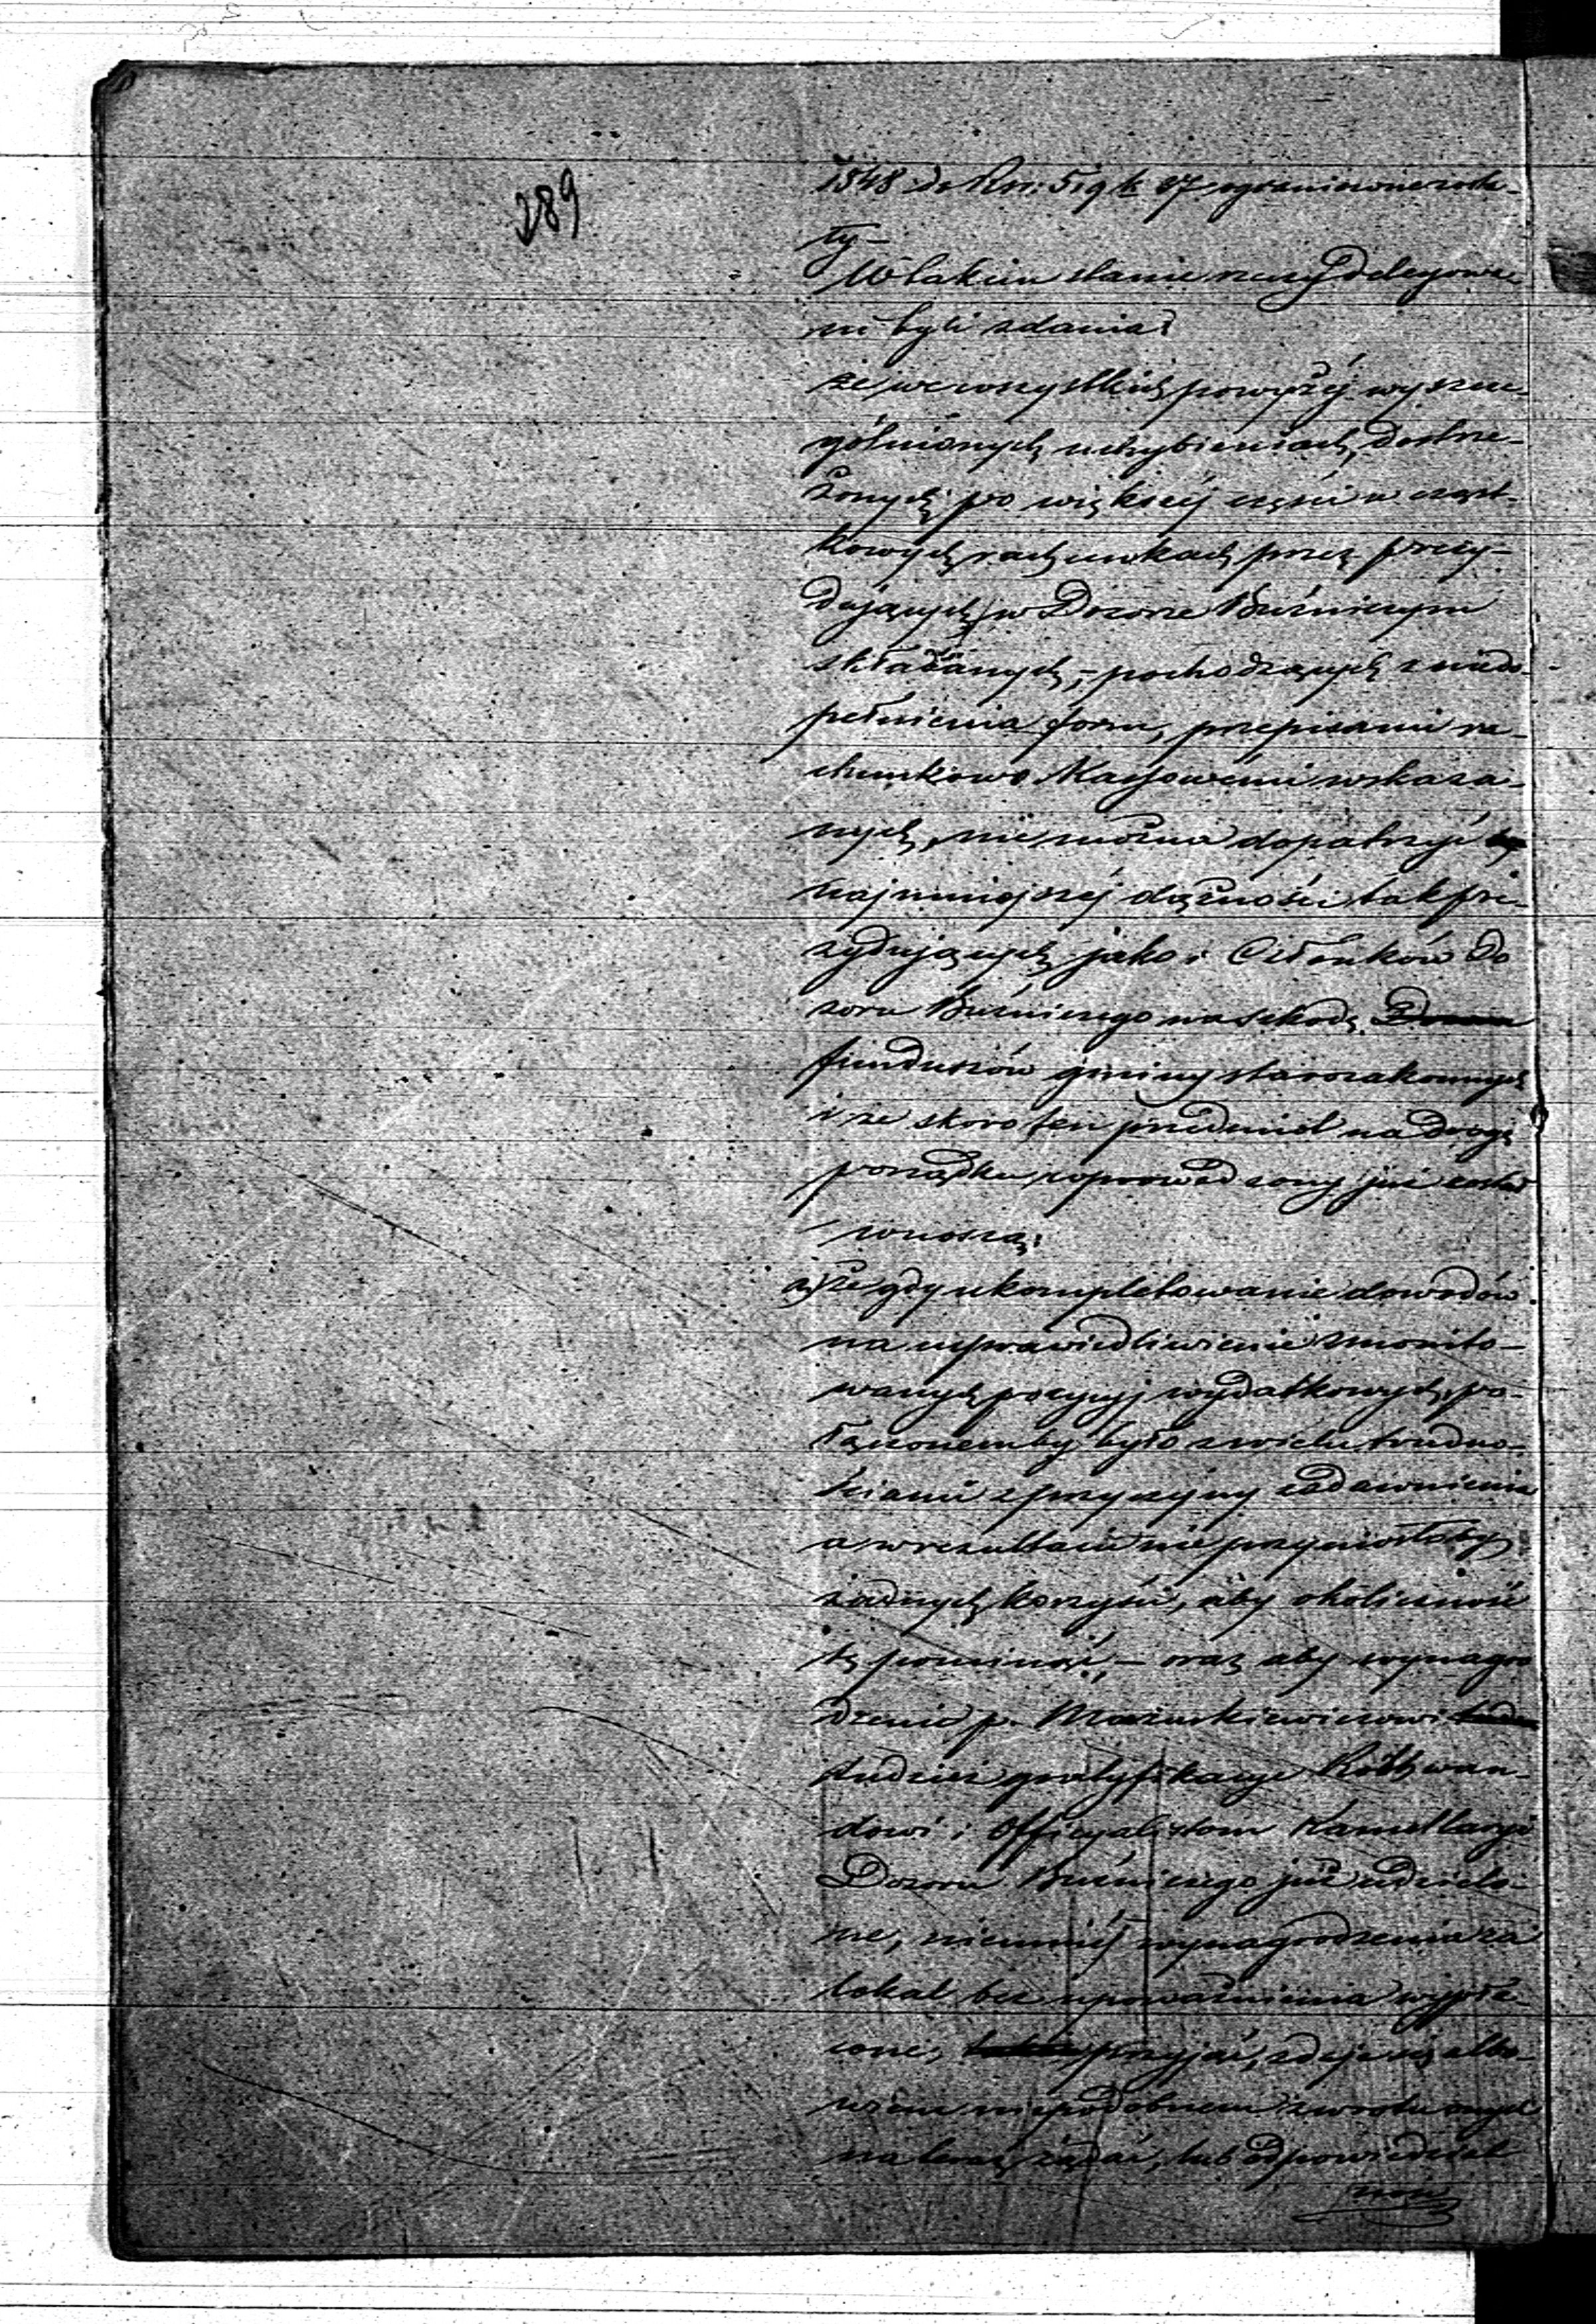 289
1848 do Rsr: 519 k 87 ograniczone zosta-
ły –
W takim stanie rzeczy Delegowa-
ni byli zdania:
że we wszystkich powyżéj wyszcze-
gólnionych uchybieniach, dostrze-
żonych po większéj części w cząst-
kowych rachunkach przez prezy-
dujących w Dozorze Bóżniczym
składanych, – pochodzących z niedo-
pełnienia form, przepisami ra-
chunkowo Kassowemi wskaza-
nych, nie można dopatrzyć
najmniejszéj dążności tak pre-
zydujących jako i Członków Do
zoru Bóżniczego na szkodę
funduszów gminy starozakonnych
i że skoro ten przedmiot na drogę
porządku zaprowadzony już został
wnoszą:
a, Że gdy ukompletowanie dowodów
na usprawiedliwienie zmonito-
wanych pozycyj wydatkowych, po-
łączonemby było z wielu trudno-
ściami z przyczyny zadawnienia
a w rezultacie nie przyniosłoby
żadnych korzyści, aby okoliczność
tę pominąć, – oraz aby wynagro
dzenie p. Mazurkiewiczowi
tudzież gratyfikacye Rothwan-
dowi i Officyalistom Kancellaryi
Dozoru Bóżniczego już udzielo-
ne, niemniéj wynagrodzenia za
lokal bez upoważnienia wypła-
cone, przyjąć, zdaje się albo-
wiem niepodobnem zwrotu onych
na teraz żądać, lub odpowiedzial
ność